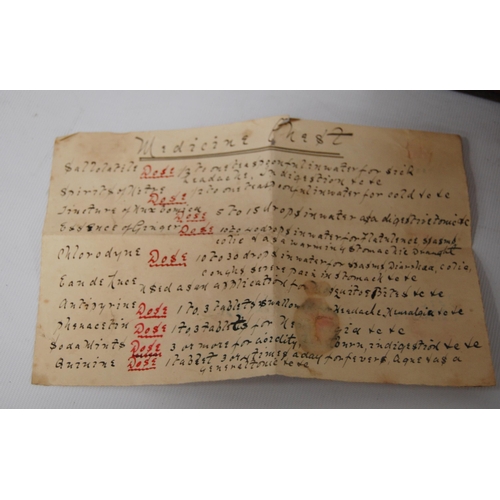 Medicine Chest
Salvolatile Dose ½ to one teaspoonful in water for sick
headache, indigestion &c &c
Spirits of Nitre Dose ½ to one teaspoonful in water for cold &c &c
Tincture of Nux Vomica Dose 5 to 15 drops in water as a digestive tonic &c
Essence of Ginger Dose 10 to 40 drops in water for flatulence spasms
colic & as a warming stomachic Draught
Chlorodyne Dose 10 to 30 drops in water for spasms Diarrhaea, colic,
coughs severe pain in stomach &c &c
Eau de Luce used as an application for Bites &c &c
Antipyrine Dose 1 to 3 tablets swallowed Headache, Neuralgia &c &c
Phenacetin Dose 1 to 3 tablets for &c &c
Soda Mints Dose 3 or more for acidity indigestion &c &c
Quinine Dose 1 tablet 3 or times a day for fevers, Ague & as a
general tonic &c &c